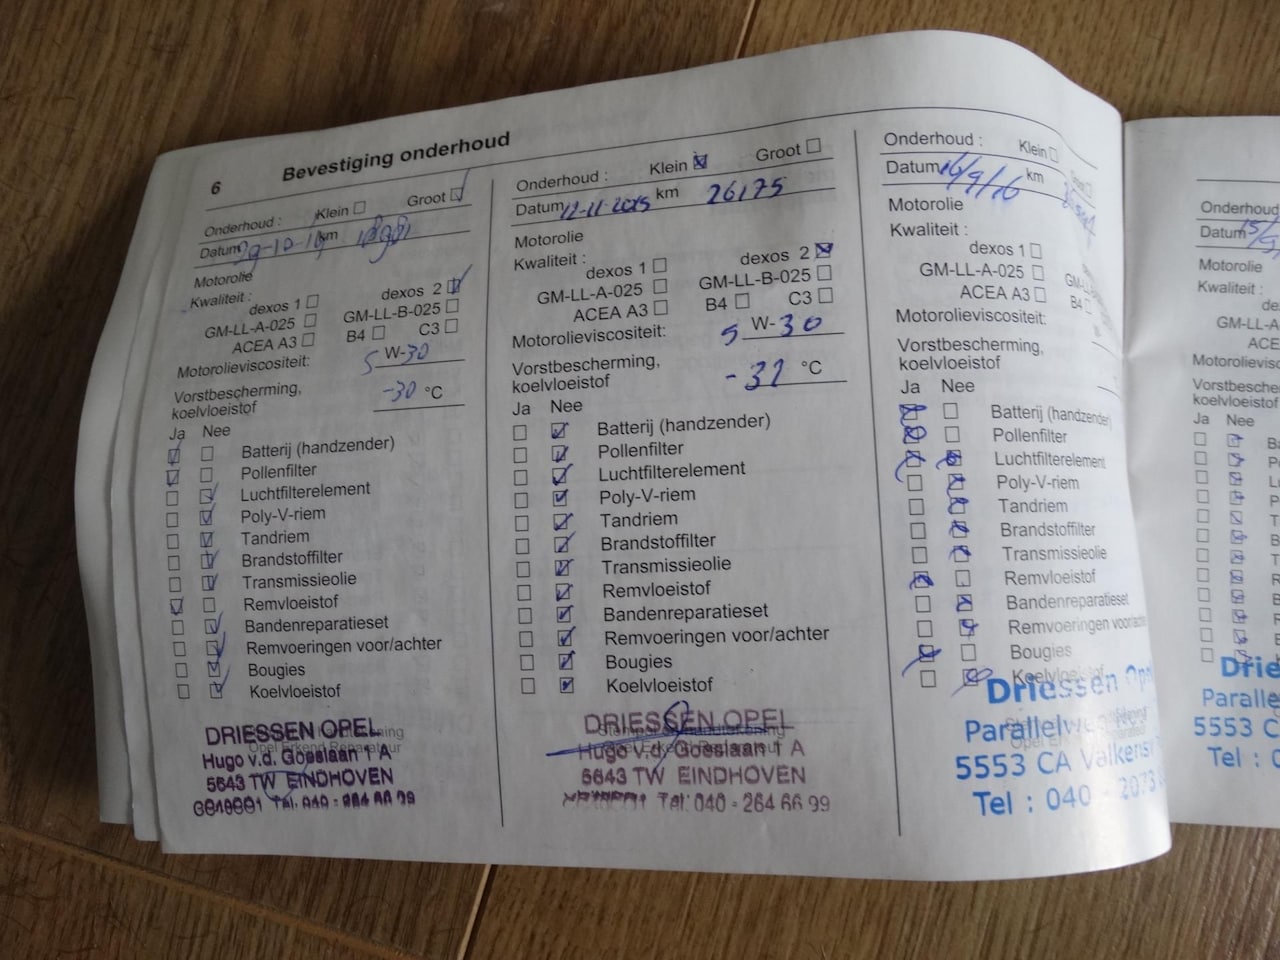 6 Bevestiging onderhoud
Onderhoud : Klein Groot
Datum km
Motorolie
Kwaliteit :
dexos 1 dexos 2
GM-LL-A-025 GM-LL-B-025
ACEA A3 B4 C3
Motorolieviscositeit: 5 W-30
Vorstbescherming,
koelvloeistof -30 °C
Ja Nee
Batterij (handzender)
Pollenfilter
Luchtfilterelement
Poly-V-riem
Tandriem
Brandstoffilter
Transmissieolie
Remvloeistof
Bandenreparatieset
Remvoeringen voor/achter
Bougies
Koelvloeistof
DRIESSEN OPEL
Opel Erkend Reparateur
Hugo v.d. Goeslaan 1 A
5643 TW EINDHOVEN
Tel. 040 - 264 66 99
Onderhoud : Klein Groot
Datum 12-11-2015 km 26175
Motorolie
Kwaliteit :
dexos 1 dexos 2
GM-LL-A-025 GM-LL-B-025
ACEA A3 B4 C3
Motorolieviscositeit: 5 W-30
Vorstbescherming,
koelvloeistof -32 °C
Ja Nee
Batterij (handzender)
Pollenfilter
Luchtfilterelement
Poly-V-riem
Tandriem
Brandstoffilter
Transmissieolie
Remvloeistof
Bandenreparatieset
Remvoeringen voor/achter
Bougies
Koelvloeistof
DRIESSEN OPEL
Hugo v.d. Goeslaan 1 A
5643 TW EINDHOVEN
Tel. 040 - 264 66 99
Onderhoud : Klein
Datum 16/9/16 km
Motorolie
Kwaliteit :
dexos 1
GM-LL-A-025
ACEA A3 B4
Motorolieviscositeit:
Vorstbescherming,
koelvloeistof
Ja Nee
Batterij (handzender)
Pollenfilter
Luchtfilterelement
Poly-V-riem
Tandriem
Brandstoffilter
Transmissieolie
Remvloeistof
Bandenreparatieset
Remvoeringen
Bougies
Koelvloeistof
Driessen
5553 CA
Tel : 040
Onderhoud
Datum
Motorolie
Kwaliteit :
Ja Nee
5553
Tel :